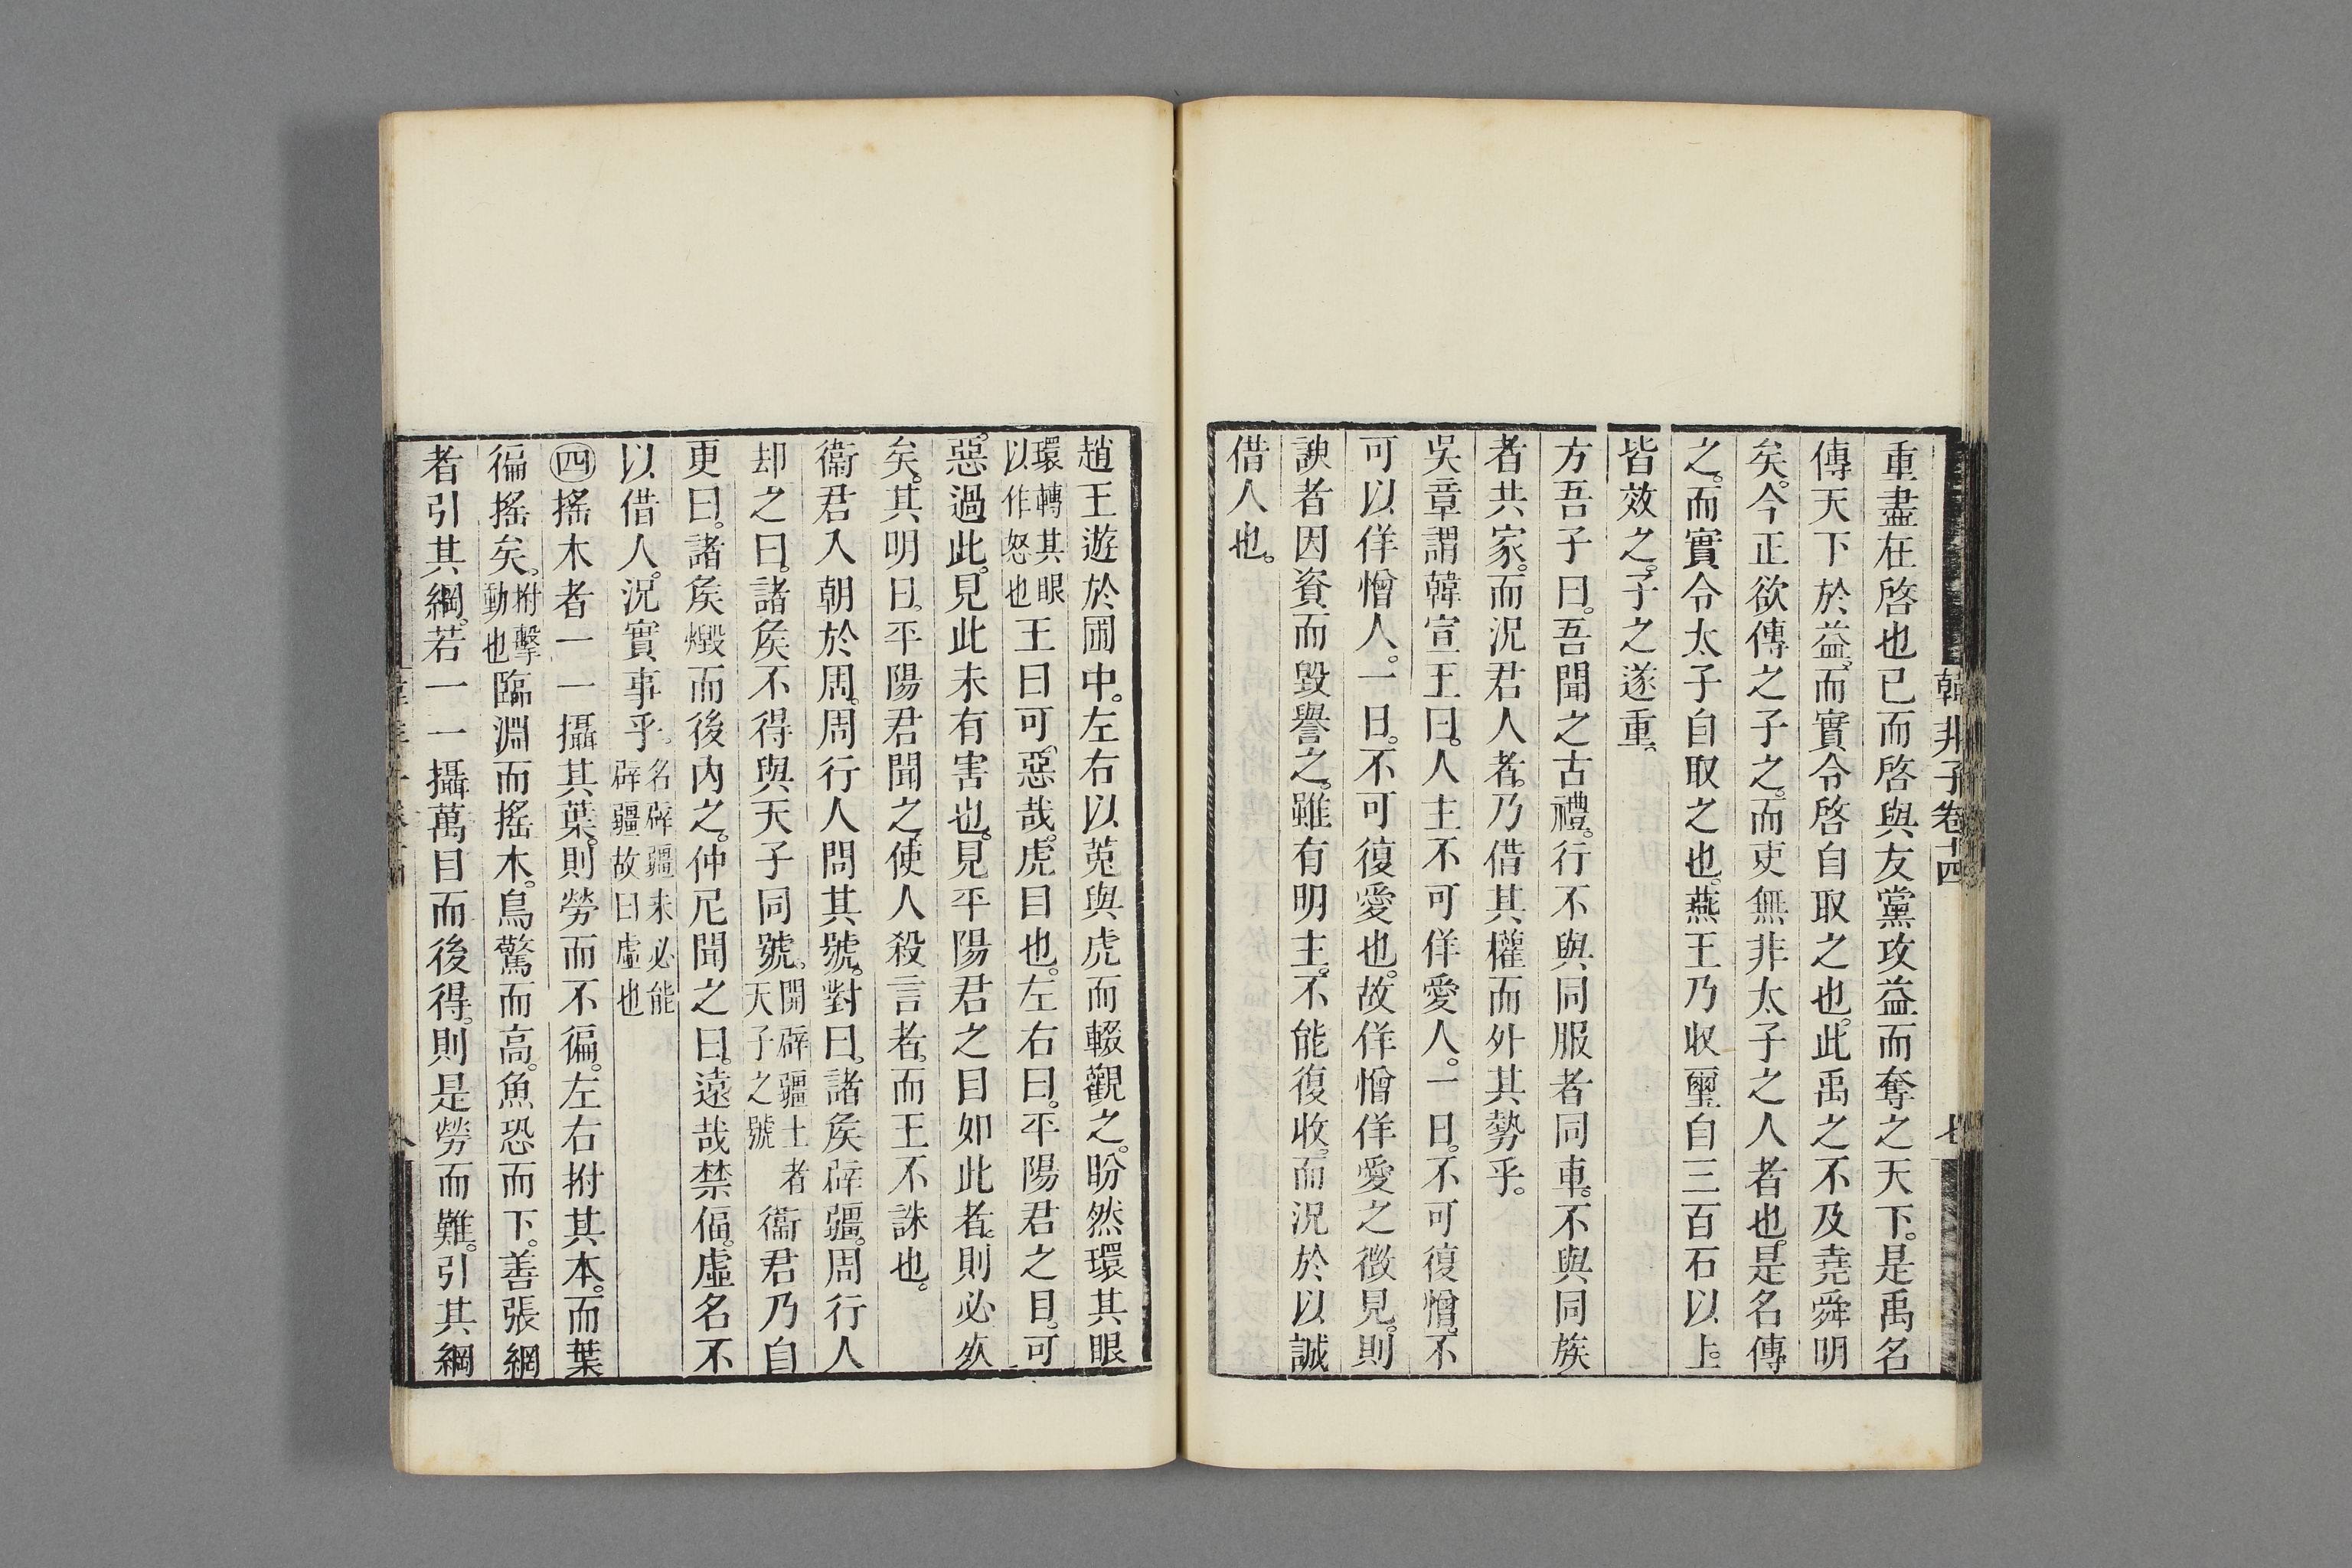 韓非子卷十四
重盡在啓也已而啓與友黨攻益而奪之天下。是禹名
傳天下於益。而實令啓自取之也。此禹之不及堯舜明
矣。今王欲傳之子之。而吏無非太子之人者也。是名傳
之。而實令太子自取之也。燕王乃收璽自三百石以上。
皆效之。子之遂重、
方吾子曰。吾聞之古禮。行不與同服者同車。不與同族
者共家。而況君人者。乃借其權而外其勢乎。
吳章謂韓宣王曰。人主不可佯愛人。一日。不可復憎。不
可以佯憎人。一日。不可復愛也。故佯憎佯愛之徵見。則
諛者因資而毀譽之。雖有明主。不能復收。而況於以誠
借人也。
趙王遊於圃中。左右以菟與虎而輟觀之。盻然環其眼
環轉其眼以作怒也王曰可惡哉。虎目也。左右曰。平陽君之目。可
惡。過此。見此未有害也。見平陽君之目如此者。則必死
矣。其明日。平陽君聞之。使人殺言者。而王不誅也。
衞君入朝於周。周行人問其號。對曰。諸矦辟疆。周行人
却之曰。諸矦不得與天子同號。開辟疆土者天子之號衞君乃自
更曰。諸矦燬而後內之。仲尼聞之曰。遠哉禁偪。虛名不
以借人。況實事乎。名辟疆未必能辟疆故曰虛也
四搖木者一一攝其葉。則勞而不徧。左右拊其本。而葉
徧搖矣。拊擊動也臨淵而搖木。鳥驚而高。魚恐而下。善張網
者引其綱。若一一攝萬目而後得。則是勞而難。引其綱